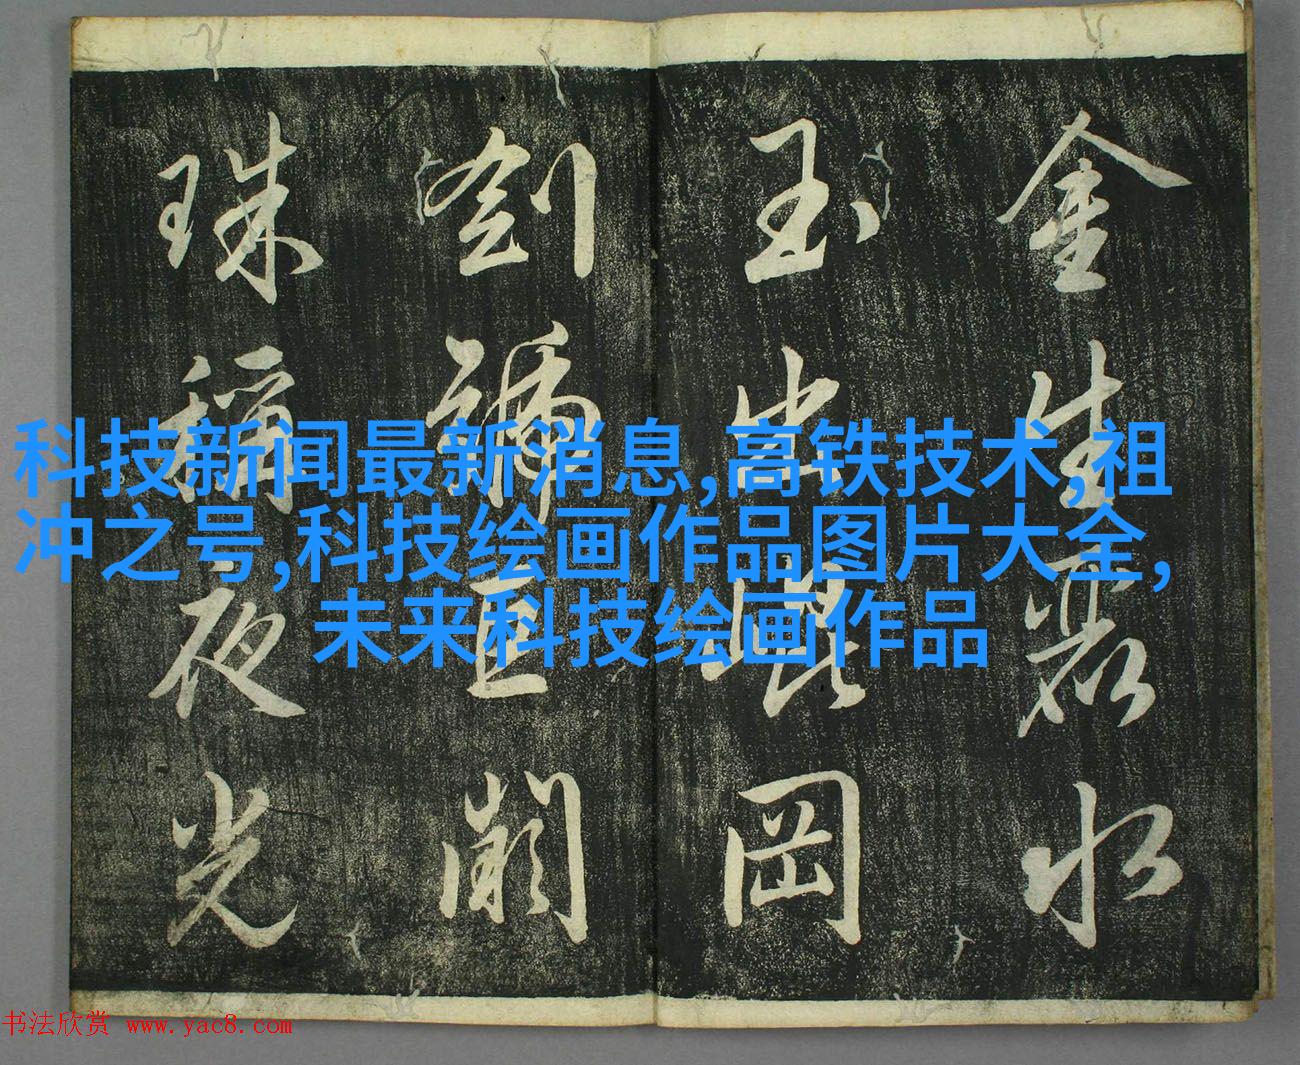 金生麗水
玉出崐岡
劍號巨闕
珠稱夜光
科技新闻最新消息,高铁技术,祖
冲之号,科技绘画作品图片大全,
未来科技绘画作品
书法欣赏 www.yac8.com